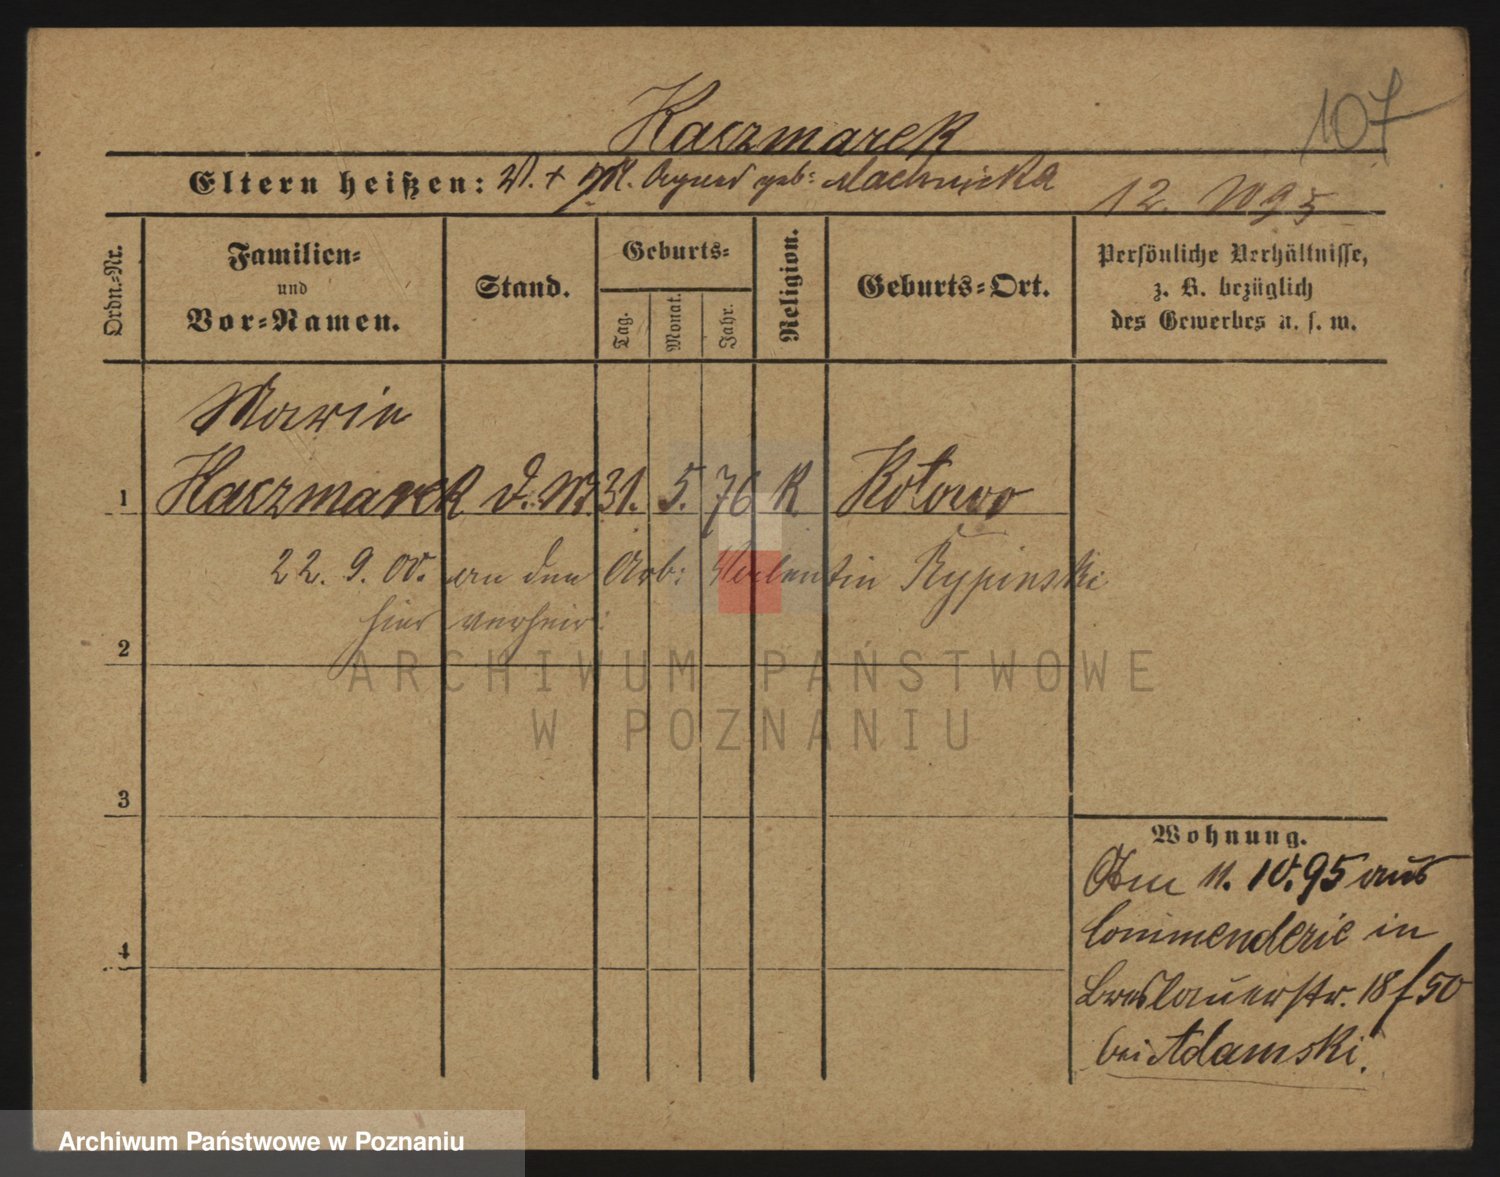 107
Kaczmarek
Eltern heißen: V. + M. Agnes geb: Machnicka
12. 1895
Ordn.-Nr.
Familien-
und
Vor-Namen.
Stand.
Geburts-
Tag.
Monat.
Jahr.
Religion.
Geburts-Ort.
Persönliche Verhältnisse,
z. B. bezüglich
des Gewerbes u. s. w.
Marie
1 Kaczmarek d. M. 31. 5. 76 K Kotowo
22. 9. 00. an den Arb: Valentin Rypinski
hier verheir:
2
ARCHIWUM PAŃSTWOWE
W POZNANIU
3
Wohnung.
Am 11. 10. 95 aus
Commenderie in
4
Breslauerstr. 18 f 50
bei Adamski.
Archiwum Państwowe w Poznaniu